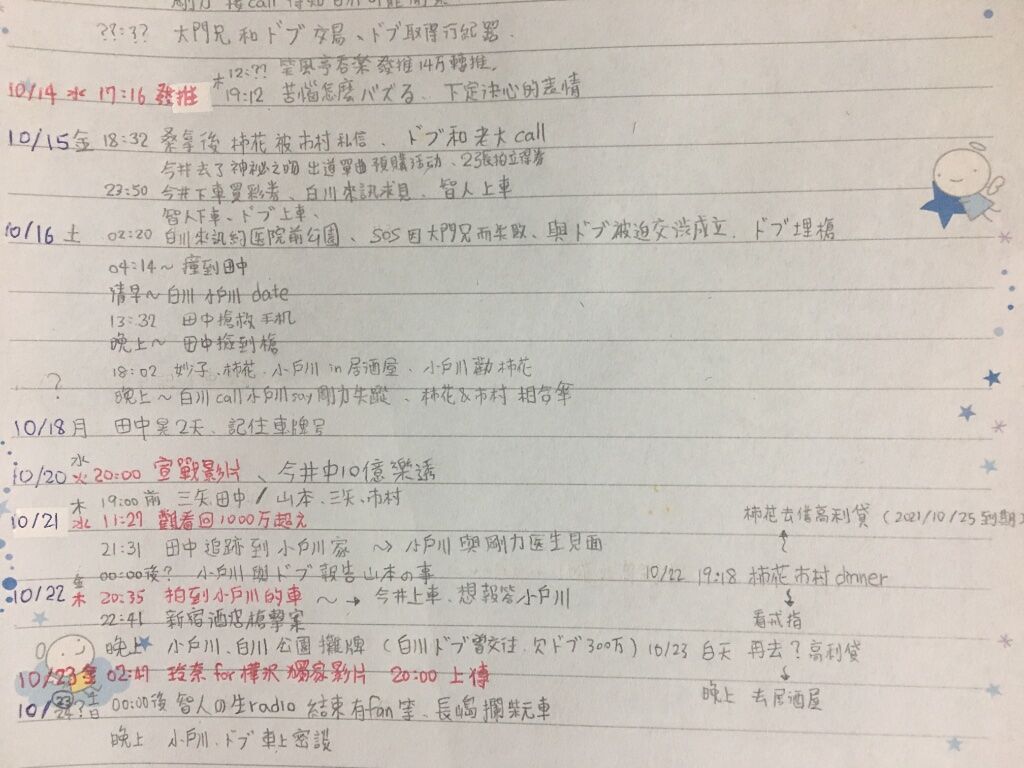 ??:?? 大門兄和ドブ交易、ドブ取得行紀器.
木 12:?? 笑風亭呑楽 發推14万轉推,
10/14 水 17:16 發推 19:12 苦惱怎麼バズる、下定決心的表情
10/15 金 18:32 桑拿後 柿花被市村私信、ドブ和老大call
今井去了神秘之吻 出道單曲預購活动、23張拍立得券
23:50 今井下車買彩券、白川來訊求見、智人上車
智人下車、ドブ上車、
10/16 土 02:20 白川來訊約医院前公園、SOS因大門兄而失敗、與ドブ被迫交涉成立、ドブ埋槍
04:14~ 撞到田中
清早~ 白川 小戶川 date
13:32 田中搶救手机
晚上~ 田中撿到槍
? 18:02 妙子、柿花、小戶川 in 居酒屋、小戶川勸柿花
晚上~ 白川call小戶川say剛力失蹤、柿花&市村 相合傘
10/18 月 田中晃2天、記住車牌号
10/20 水 火 20:00 宣戰影片、今井中10億樂透
木 19:00前 三矢田中 / 山本、三矢、市村
10/21 水 11:27 觀看回1000万超え
柿花去借高利貸 (2021/10/25到期
21:31 田中追跡到小戶川家 ~> 小戶川與剛力医生見面
金 00:00後? 小戶川與ドブ報告山本の事
10/22 木 20:35 拍到小戶川的車 ~→ 今井上車、想報答小戶川
10/22 19:18 柿花市村dinner
↓
看戒指
22:41 新宿酒店槍擊案
晚上 小戶川、白川公園攤牌 (白川ドブ曾交往、欠ドブ300万)
10/23 白天 再去?高利貸
↓
晚上 去居酒屋
10/23 金 02:47 玲奈 for 樺沢 獨家影片 20:00 上傳
10/23 24? 土~日 00:00後 智人の生radio 結束有fan等、長嶋攔柴元車
晚上 小戶川、ドブ車上密談